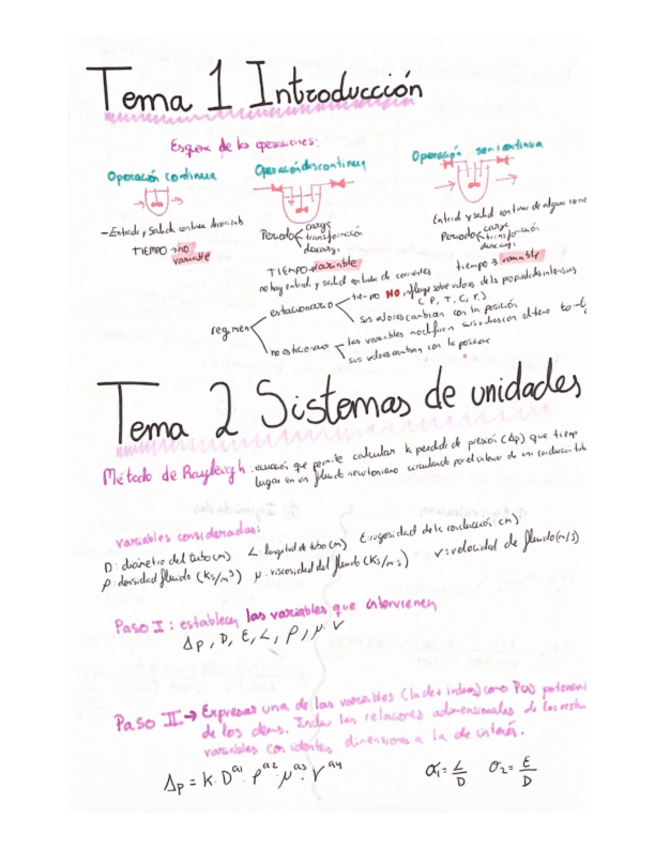 Tema 1 Introducción
Esquema de las operaciones:
Operación continua
- Entrada y salida continua
TIEMPO → no variable
Operación discontinua
Periodo carga
transformación
descarga
TIEMPO → variable
no hay entrada y salida continua de corrientes
Operación semicontinua
Entrada y salida continua de alguna
Periodo carga
transformación
descarga
tiempo → variable
regimen
estacionario
tiempo NO influye sobre valores de las propiedades intensivas
( P, T, C, r.)
sus valores cambian con la posición
no estacionario
las variables modifican sus valores con el tiempo
sus valores cambian con la posición
Tema 2 Sistemas de unidades
Método de Rayleigh: ecuación que permite calcular la perdida de presión (Δp) que tiene
lugar en un fluido newtoniano circulando por el interior de una conducción
variables consideradas:
D: diámetro del tubo (m) L: longitud de tubo (m) E: rugosidad de la conducción (m)
ρ: densidad fluido (Ks/m³) μ: viscosidad del fluido (Ks/m s) v: velocidad de fluido (m/s)
Paso I: establecen las variables que intervienen
Δp, D, E, L, ρ, μ, V
Paso II → Expresar una de las variables como
de los demas. Incluir las relaciones adimensionales de las
variables con identicas dimensiones a la de interés.
Δp = K · D^a1 · ρ^a2 · μ^a3 · V^a4
σ1 = L/D σ2 = E/D